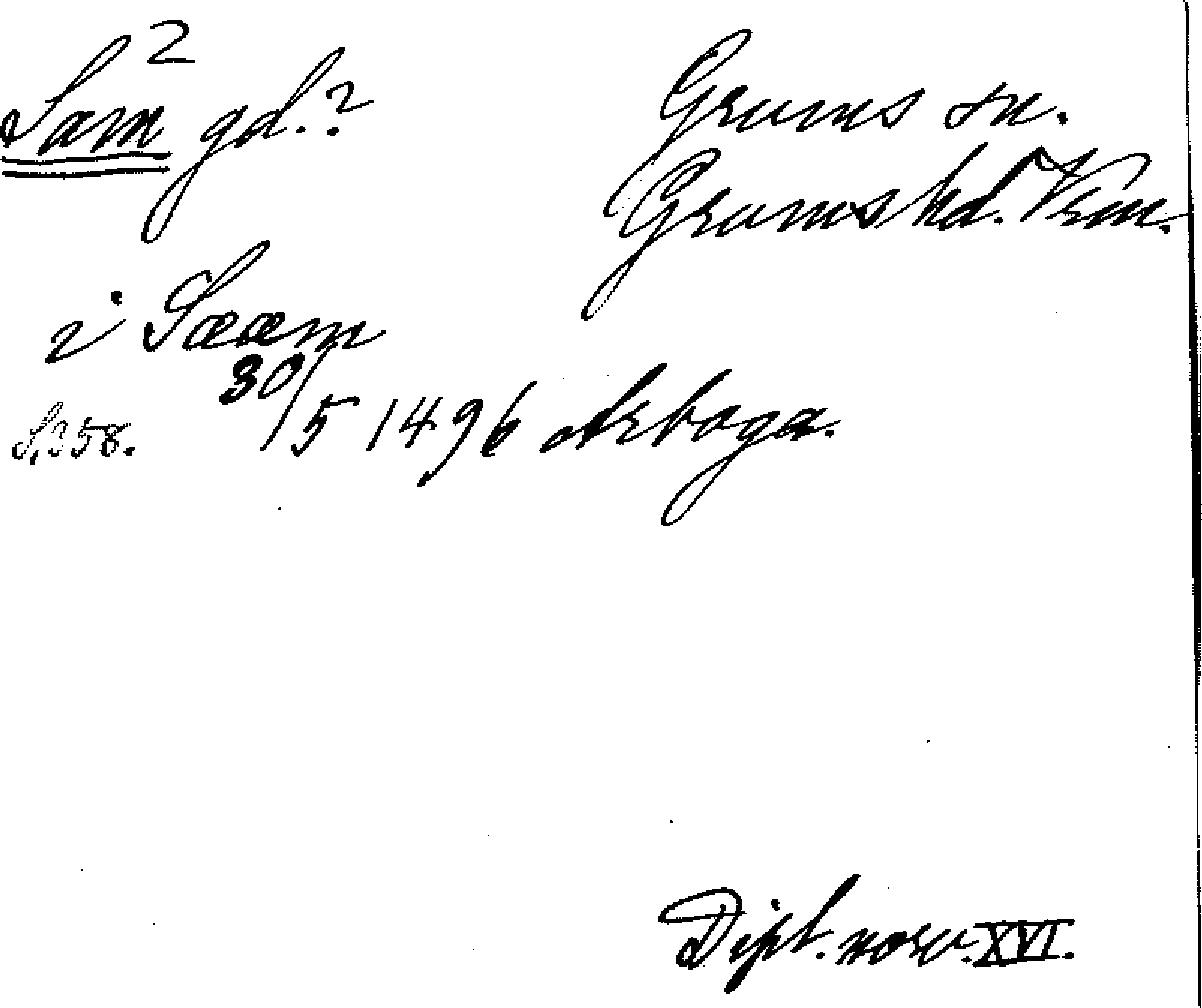 2
Sam gd.?
Grums sn.
Grums hd. Vrm.
i Sææm
30/5 1496 Arboga.
S. 358.
Dipl. norv. XVI.